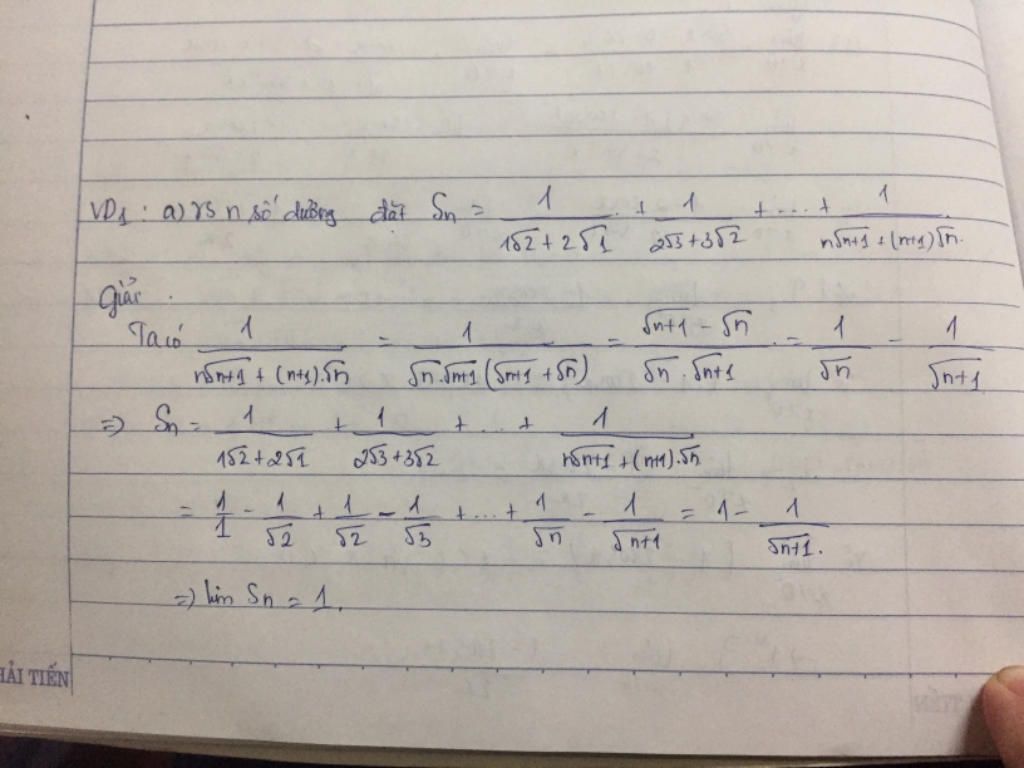 VD1 : a) Với n số dương đặt Sn = 1/(1√2 + 2√1) + 1/(2√3 + 3√2) + ... + 1/(n√n+1 + (n+1)√n).
Giải
Ta có 1/(n√n+1 + (n+1).√n) = 1/(√n.√n+1 (√n+1 + √n)) = (√n+1 - √n)/(√n.√n+1) = 1/√n - 1/√n+1
=> Sn = 1/(1√2 + 2√1) + 1/(2√3 + 3√2) + ... + 1/(n√n+1 + (n+1).√n)
= 1/1 - 1/√2 + 1/√2 - 1/√3 + ... + 1/√n - 1/√n+1 = 1 - 1/√n+1.
=> lim Sn = 1.
HẢI TIẾN